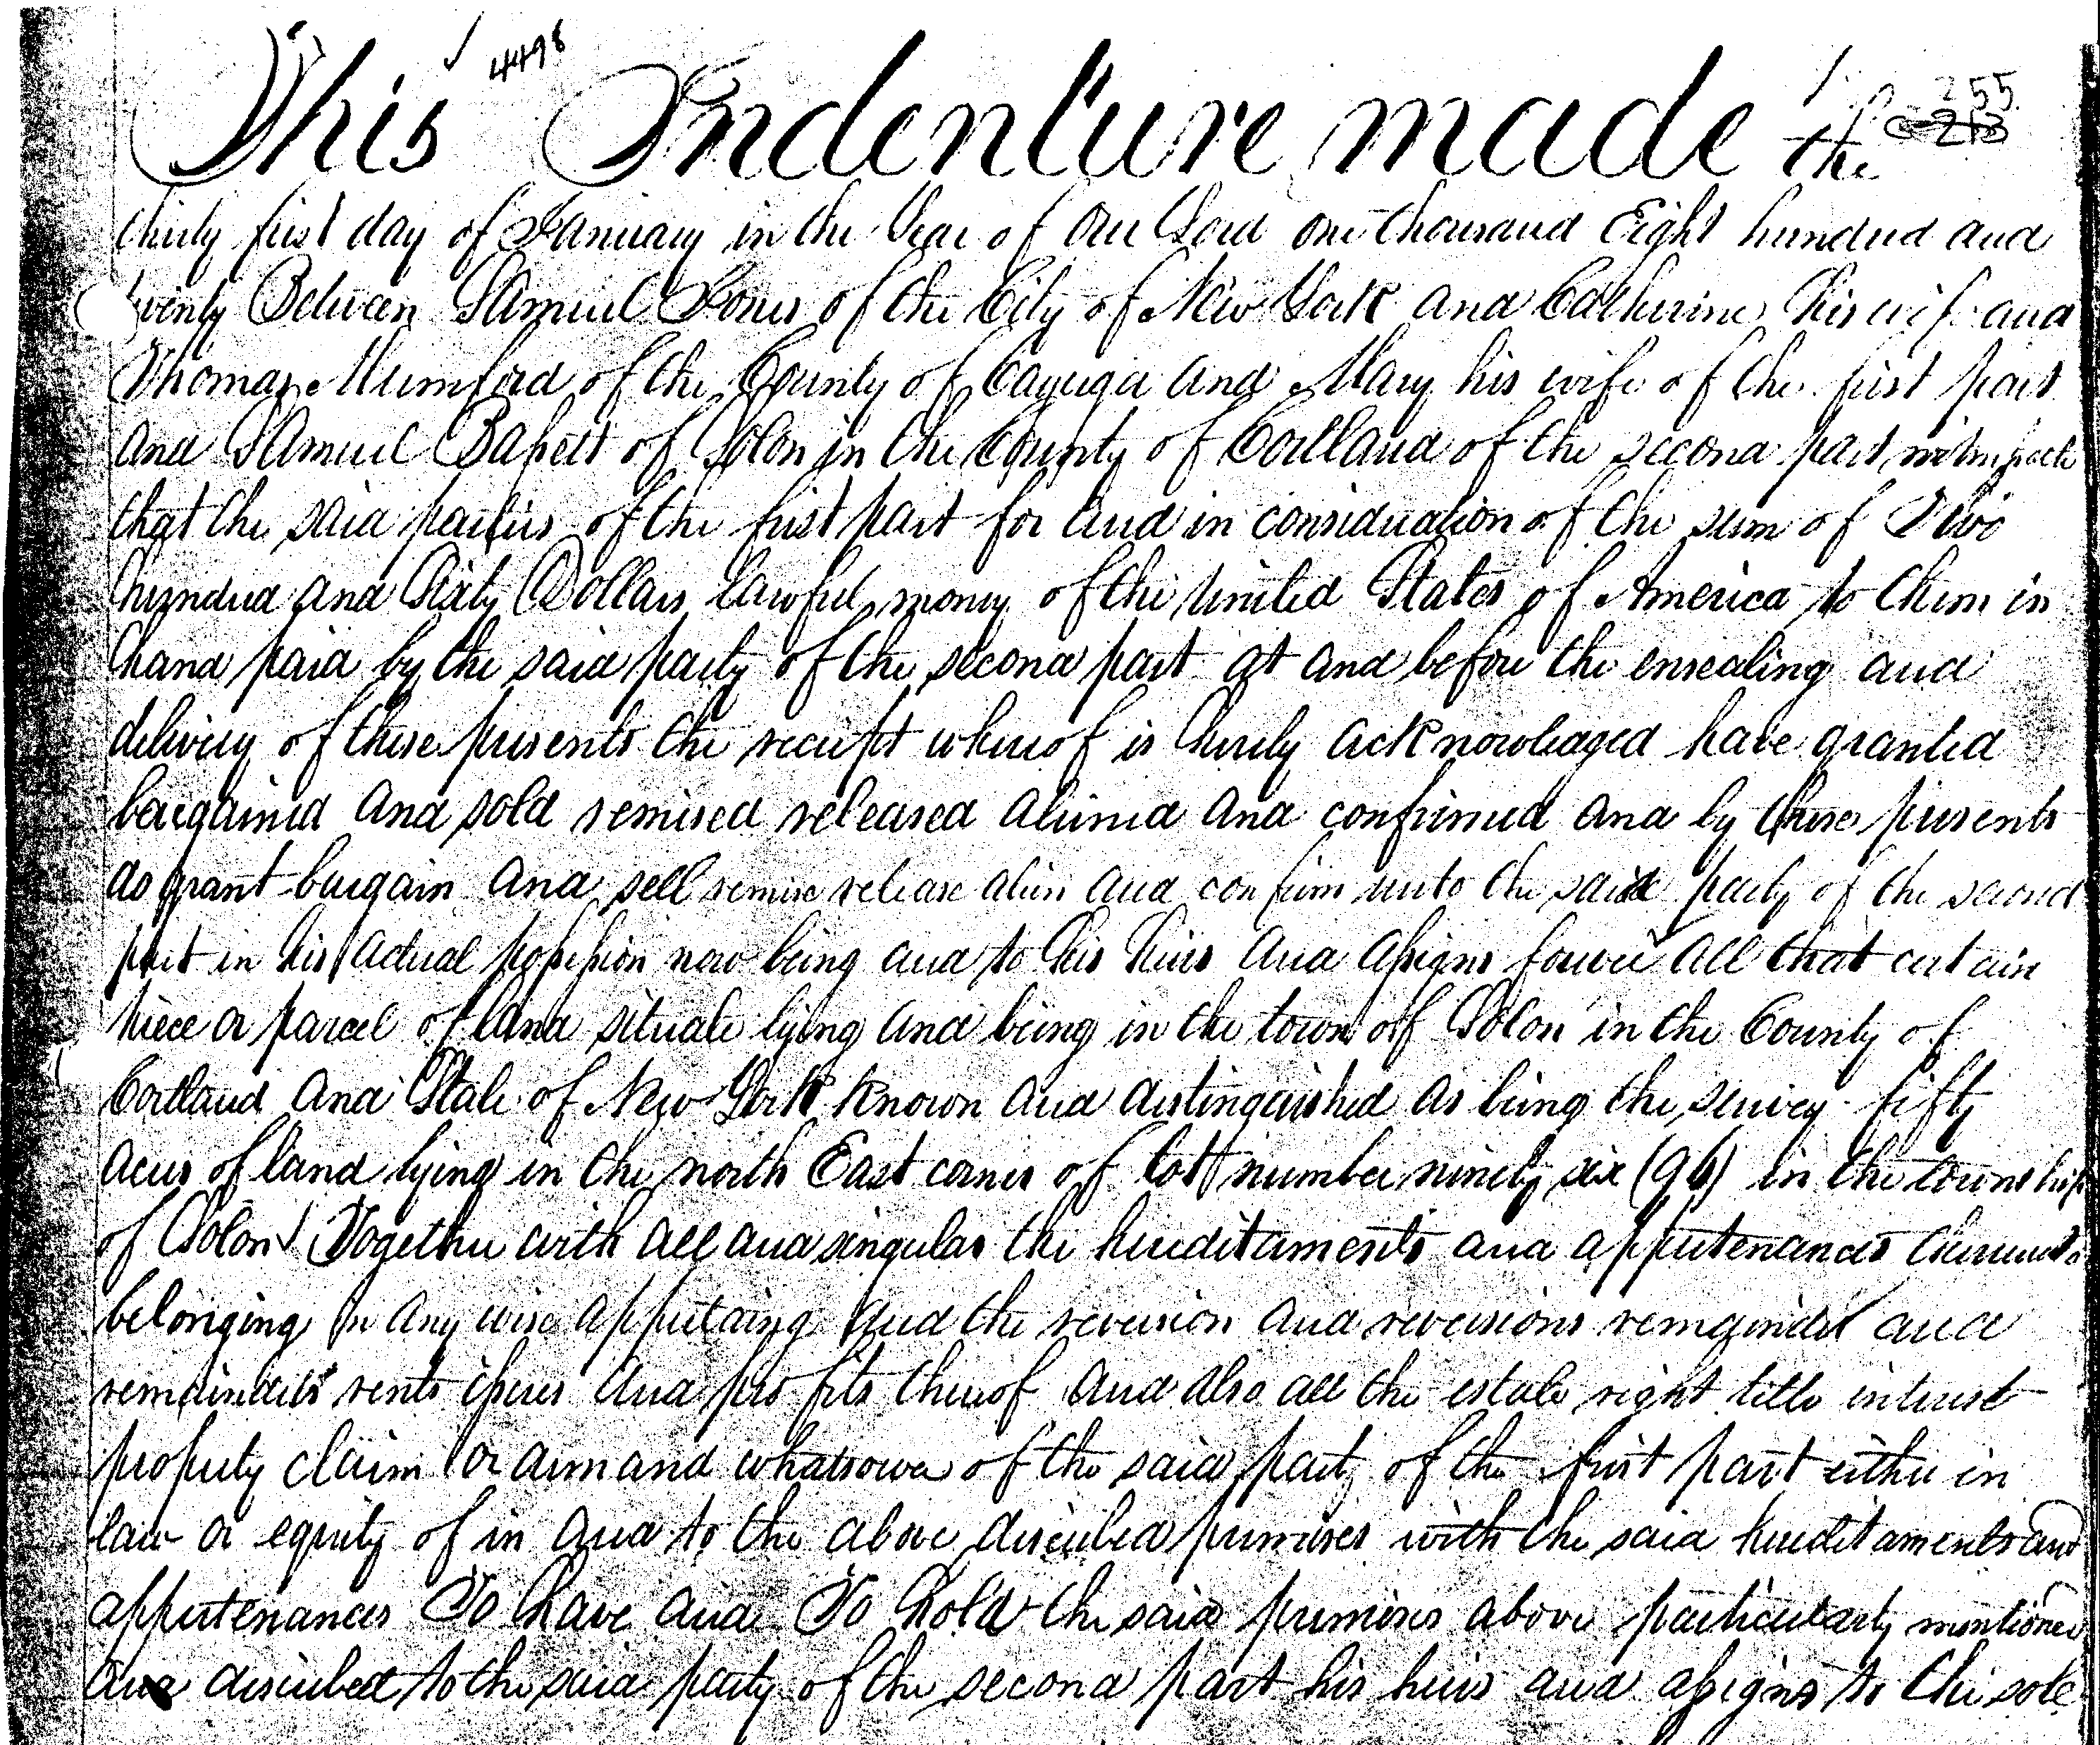 4498
255
213
This Indenture made the
thirty first day of January in the Year of Our Lord one thousand Eight hundred and
twenty Between Samuel Jones of the City of New York and Catherine his wife and
Thomas Mumford of the County of Cayuga and Mary his wife of the first part
and Samuel of Solon in the County of Cortland of the second part witnesseth
that the said parties of the first part for and in consideration of the sum of Two
hundred and Sixty Dollars lawful money of the United States of America to them in
hand paid by the said party of the second part at and before the ensealing and
delivery of these presents the receipt whereof is hereby acknowledged have granted
bargained and sold remised released aliened and confirmed and by these presents
do grant bargain and sell remise release alien and confirm unto the said party of the second
part in his actual possession now being and to his heirs and assigns forever all that certain
piece or parcel of land situate lying and being in the town off Solon in the County of
Cortland and State of New York known and distinguished as being the survey fifty
acres of land lying in the north East corner of lott number ninety six (96) in the township
of Solon Together with all and singular the hereditaments and appertenances thereunto
belonging in any wise appertaing and the reversion and reversions remainder and
remainders rents issues and profits thereof and also all the estate right title interest
property claim or demand whatsoever of the said party of the first part either in
law or equity of in and to the above described premises with the said hereditaments and
appertenances To have and To hold the said premises above particularly mentioned
and described to the said party of the second part his heirs and assigns to the sole